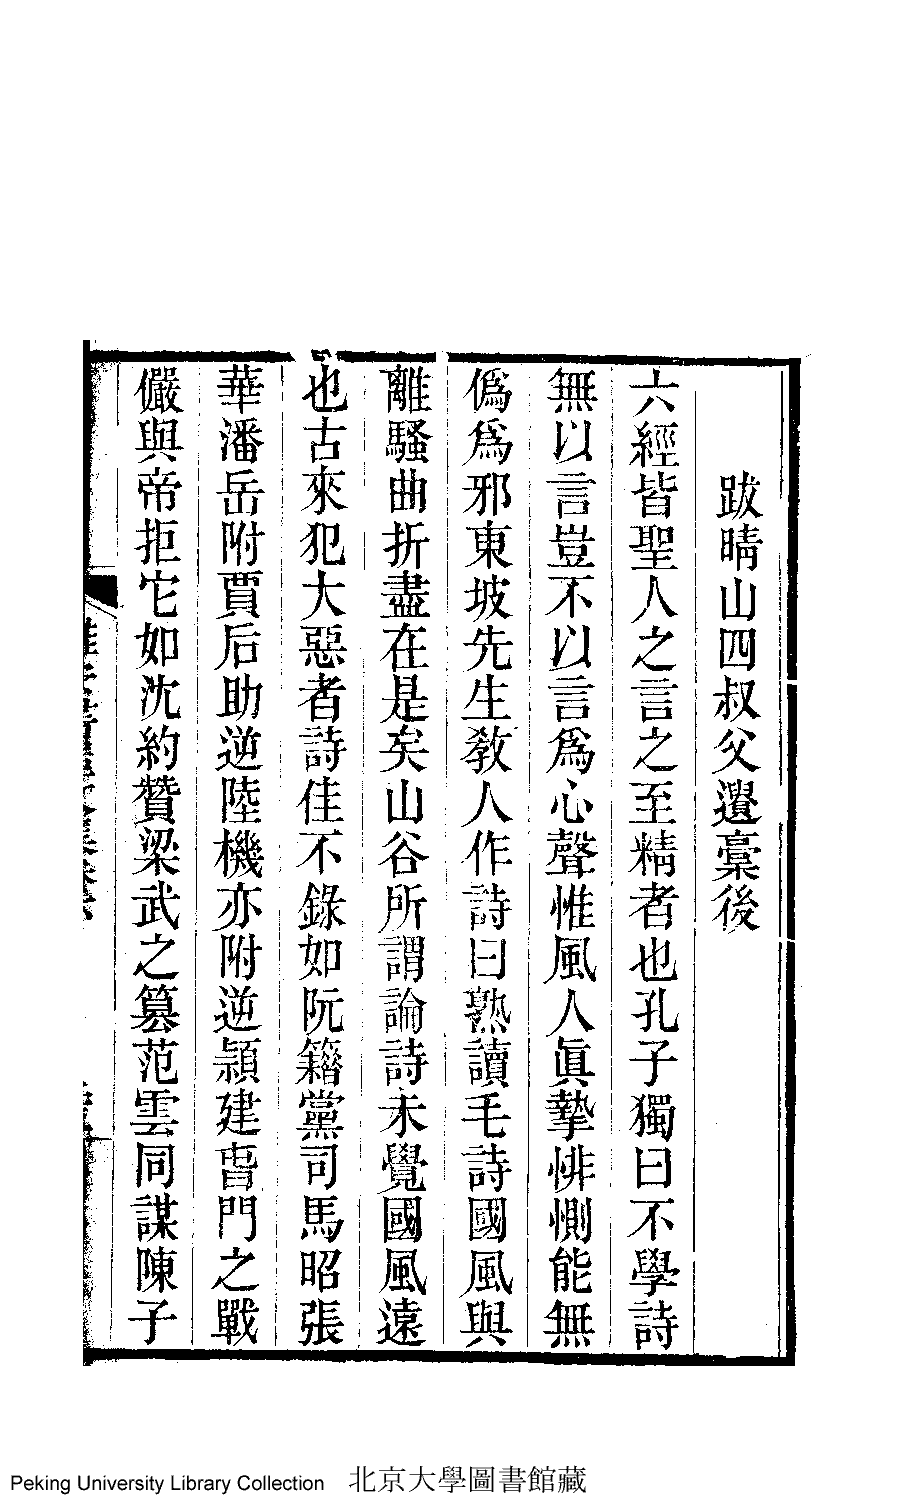 跋晴山四叔父遺稾後
六經皆聖人之言之至精者也孔子獨曰不學詩
無以言豈不以言爲心聲惟風人眞摯悱惻能無
僞爲邪東坡先生敎人作詩曰熟讀毛詩國風與
離騷曲折盡在是矣山谷所謂論詩未覺國風遠
也古來犯大惡者詩佳不錄如阮籍黨司馬昭張
華潘岳附賈后助逆陸機亦附逆頴建春門之戰
儼與帝拒它如沈約贊梁武之篡范雲同謀陳子
Peking University Library Collection 北京大學圖書館藏